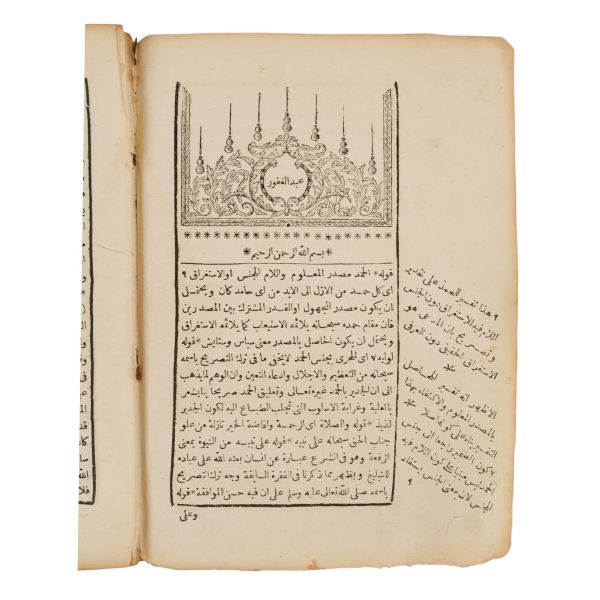 عبد الغفور
بسم الله الرحمن الرحيم
قوله* الحمد مصدر المعلوم واللام للجنس او الاستغراق ٩
اى كل حمد من الازل الى الابد من اى حامد كان ويحتمل
ان يكون مصدر المجهول او القدر المشترك بين المصدرين
فان مقام حمده سبحانه يلائمه الاستيعاب كما يلائمه الاستغراق
ويحتمل ان يكون الحاصل بالمصدر معنى سپاس وستايش* قوله
لوليه ٧ اى الحرى بجنس الحمد لا يخفى ما فى ترك التصريح باسمه
سبحانه من التعظيم والاجلال وادعاء التعين وان الوهم لا يذهب
الى ان الجدير بالحمد غيره تعالى وتعليق الحمد صريحا بما يشعر
بالعلية وغرابة الاسلوب التى تجلب الطباع اليه لكون الجديد
لذيذ* قوله والصلاة اى الرحمة وافاضة الخير نازلة من علو
جناب الحق سبحانه على نبيه* قوله نبيه من النبوة بمعنى
الرفعة وهو فى الشرع عبارة عن انسان بعثه الله على عباده
للتبليغ ويظهر مما ذكرنا فى الفقرة السابقة وجه ترك التصريح
باسمه صلى الله تعالى عليه وسلم على ان فيه حسن الموافقة* قوله
وعلى
٩ هذا تفسير للحمد على تقدير
اللام فيه للاستغراق دون الجنس
وتصريح بان المدعى هو
الاستغراق الحقيقى دون العرفى
الاظهر انه تفسير للحاصل
بالمصدر المعلوم والاكتفاء بهذا
التفسير بناء على كونه اصلا
٧ كون الضمير راجعا الى جنس
الحمد ليس مبنيا على كون اللام فيه
للجنس لان معنى الجنس يستفاد